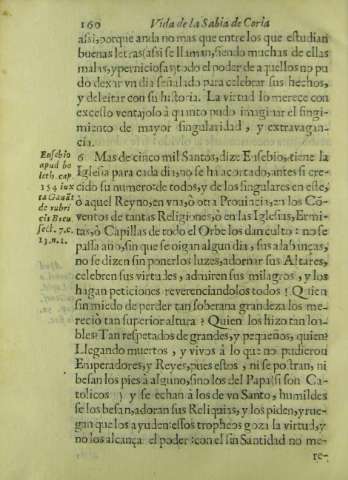 160 Vida de la Sabia de Coria
assi, porque anda no mas que entre los que estudian
buenas letras (assi se llaman, siendo muchas de ellas
malas, y perniciosas) todo el poder de aquellos no pu
do dexar vn dia señalado para celebrar sus hechos,
y deleitar con su historia. La virtud lo merece con
excesso ventajoso à quanto pudo imaginar el fingi-
miento de mayor singularidad, y extravagan-
cia.
Eusebio
apud bo
leth. cap.
154 iux
ta Gauãt
de rubri
cis Breu
sect. 7. c.
13. n. 2.
6 Mas de cinco mil Santos, dize Eusebio, tiene la
Iglesia para cada dia, no se ha acortado, antes si cre-
cido su numero: de todos, y de los singulares en este,
ò aquel Reyno, en vna, ò otra Prouincia, en los Cõ-
ventos de tantas Religiones, ò en las Iglesias, Ermi-
tas, ò Capillas de todo el Orbe los dan culto: no se
passa año, sin que se oigan algun dia, sus alabanças,
no se dizen sin ponerlos luzes, adornar sus Altares,
celebren sus virtudes, admiren sus milagros, y los
hagan peticiones reverenciandolos todos! Quien
sin miedo de perder tan soberana grandeza los me-
reciò tan superior altura? Quien los hizo tan loa-
bles? Tan respetados de grandes, y pequeños, quien?
Llegando muertos, y vivos à lo que no pudieron
Emperadores, y Reyes, pues estos, ni se postran, ni
besan los pies à alguno, sino los del Papa (si son Ca-
tolicos) y se echan à los de vn Santo, humildes
se los besan, adoran sus Reliquias, y los piden, y rue-
gan que los ayuden: essos tropheos goza la virtud, y
no los alcança el poder: con el sin Santidad no me-
re-